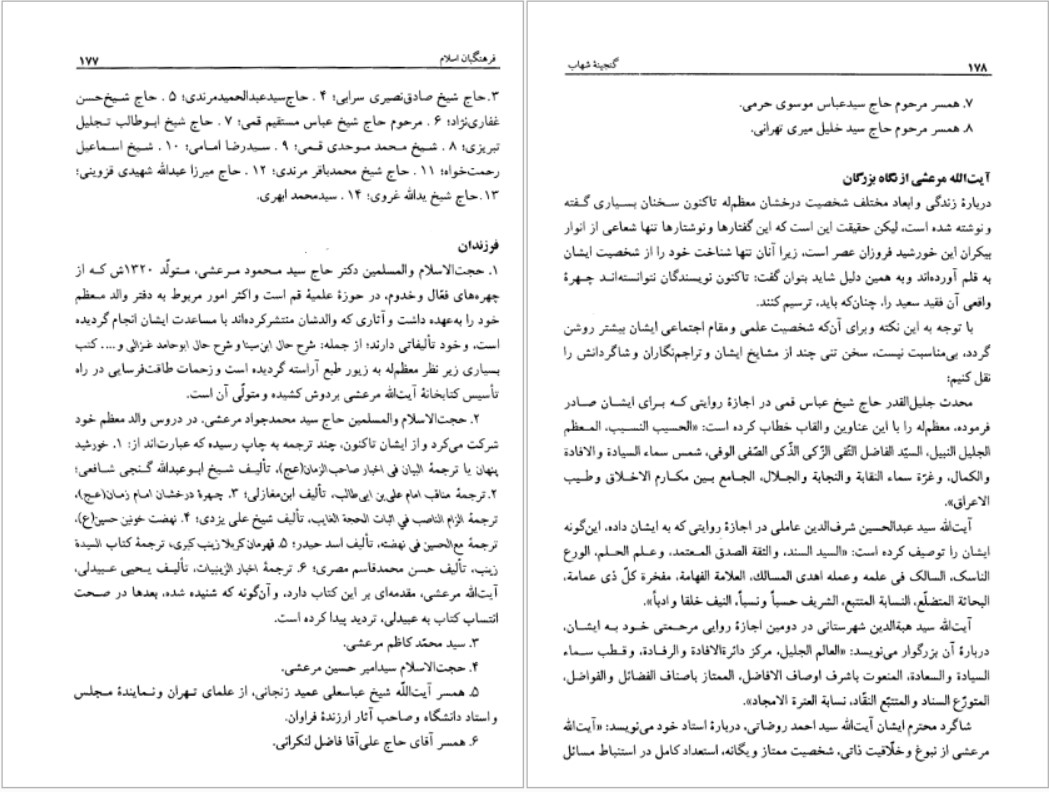 فرهنگبان اسلام ۱۷۷
۳.حاج شیخ صادق‌نصیری سرابی؛ ۴ . حاج‌سیدعبدالحمیدمرندی؛ ۵ . حاج شیخ‌حسن
غفاری‌نژاد؛ ۶ . مرحوم حاج شیخ عباس مستقیم قمی؛ ۷ . حاج شیخ ابوطالب تجلیل
تبریزی؛ ۸ . شیخ محمد موحدی قمی؛ ۹ . سیدرضا امامی؛ ۱۰ . شیخ اسماعیل
رحمت‌خواه؛ ۱۱ . حاج شیخ محمدباقر مرندی؛ ۱۲ . حاج میرزا عبدالله شهیدی قزوینی؛
۱۳.حاج شیخ یدالله غروی؛ ۱۴ . سیدمحمد ابهری.
فرزندان
۱. حجت‌الاسلام والمسلمین دکتر حاج سید محمود مرعشی، متولّد ۱۳۲۰ش که از
چهره‌های فعّال وخدوم، در حوزهٔ علمیهٔ قم است واکثر امور مربوط به دفتر والد معظم
خود را به‌عهده داشت و آثاری که والدشان منتشرکرده‌اند با مساعدت ایشان انجام گردیده
است، وخود تألیفاتی دارند؛ از جمله: شرح حال ابن‌سینا و شرح حال ابوحامد غزالی و.... کتب
بسیاری زیر نظر معظم‌له به زیور طبع آراسته گردیده است وزحمات طاقت‌فرسایی در راه
تأسیس کتابخانهٔ آیت‌الله مرعشی بردوش کشیده و متولّی آن است.
۲. حجت‌الاسلام والمسلمین حاج سید محمدجواد مرعشی. در دروس والد معظم خود
شرکت می‌کرد و از ایشان تاکنون، چند ترجمه به چاپ رسیده که عبارت‌اند از: ۱. خورشید
پنهان یا ترجمهٔ البیان في اخبار صاحب الزمان(عج)، تألیف شیخ ابوعبدالله گنجی شافعی؛
۲.ترجمهٔ مناقب امام علی‌بن ابی‌طالب، تألیف ابن‌مغازلی؛ ۳. چهرهٔ درخشان امام زمان(عج)،
ترجمهٔ الزام الناصب في اثبات الحجة الغایب، تألیف شیخ علی یزدی؛ ۴. نهضت خونین حسین(ع)،
ترجمهٔ مع‌الحسین في نهضته، تألیف اسد حیدر؛ ۵. قهرمان کربلا زینب کبری، ترجمهٔ کتاب السیدة
زینب، تألیف حسن محمدقاسم مصری؛ ۶. ترجمهٔ اخبار الزینبیات، تألیف یحیی عبیدلی،
آیت‌الله مرعشی، مقدمه‌ای بر این کتاب دارد، و آن‌گونه که شنیده شده، بعدها در صحت
انتساب کتاب به عبیدلی، تردید پیدا کرده است.
۳. سید محمّد کاظم مرعشی.
۴. حجت‌الاسلام سیدامیر حسین مرعشی.
۵. همسر آیت‌اللّه شیخ عباسعلی عمید زنجانی، از علمای تهران ونمایندهٔ مجلس
واستاد دانشگاه وصاحب آثار ارزندهٔ فراوان.
۶. همسر آقای حاج علی‌آقا فاضل لنکرانی.
۱۷۸ گنجینهٔ شهاب
۷. همسر مرحوم حاج سیدعباس موسوی حرمی.
۸. همسر مرحوم حاج سید خلیل میری تهرانی.
آیت‌الله مرعشی از نگاه بزرگان
دربارهٔ زندگی وابعاد مختلف شخصیت درخشان معظم‌له تاکنون سخنان بسیاری گفته
ونوشته شده است، لیکن حقیقت این است که این گفتارها ونوشتارها تنها شعاعی از انوار
بیکران این خورشید فروزان عصر است، زیرا آنان تنها شناخت خود را از شخصیت ایشان
به قلم آورده‌اند وبه همین دلیل شاید بتوان گفت: تاکنون نویسندگان نتوانسته‌اند چهرهٔ
واقعی آن فقید سعید را، چنان‌که باید، ترسیم کنند.
با توجه به این نکته وبرای آن‌که شخصیت علمی ومقام اجتماعی ایشان بیشتر روشن
گردد، بی‌مناسبت نیست، سخن تنی چند از مشایخ ایشان وتراجم‌نگاران وشاگردانش را
نقل کنیم:
محدث جلیل‌القدر حاج شیخ عباس قمی در اجازهٔ روایتی که برای ایشان صادر
فرموده، معظم‌له را با این عناوین والقاب خطاب کرده است: «الحسیب النسیب، المعظم
الجلیل النبیل، السیّد الفاضل التّقی الزّکی الذّکی الصّفی الوفی، شمس سماء السیادة والافادة
والکمال، وغرّة سماء النقابة والنجابة والجلال، الجامع بین مکارم الاخلاق وطیب
الاعراق».
آیت‌الله سید عبدالحسین شرف‌الدین عاملی در اجازهٔ روایتی که به ایشان داده، این‌گونه
ایشان را توصیف کرده است: «السید السند، والثقة الصدق المعتمد، وعلم الحلم، الورع
الناسک، السالک فی علمه وعمله اهدی المسالک، العلامة الفهامة، مفخرة کلّ ذی عمامة،
البحاثة المتضلّع، النسابة المتتبع، الشریف حسباً ونسباً، النیف خلقا وادباً».
آیت‌الله سید هبةالدین شهرستانی در دومین اجازهٔ روایی مرحمتی خود به ایشان،
دربارهٔ آن بزرگوار می‌نویسد: «العالم الجلیل، مرکز دائرةالافادة والرفادة، وقطب سماء
السیادة والسعادة، المنعوت باشرف اوصاف الافاضل، الممتاز باصناف الفضائل والفواضل،
المتورّع السناد والمتتبّع النقّاد، نسابة العترة الامجاد».
شاگرد محترم ایشان آیت‌الله سید احمد روضاتی، دربارهٔ استاد خود می‌نویسد: «آیت‌الله
مرعشی از نبوغ وخلّاقیت ذاتی، شخصیت ممتاز ویگانه، استعداد کامل در استنباط مسائل